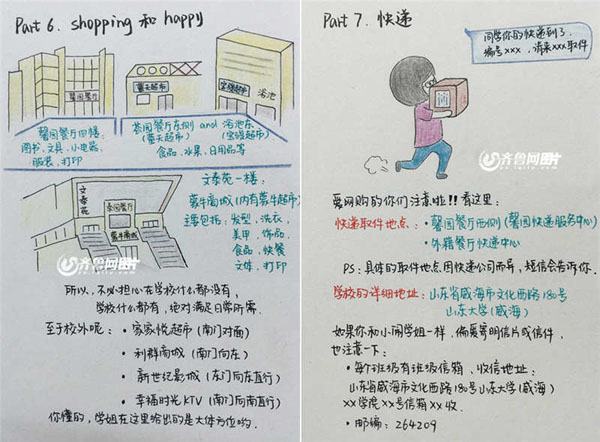 Part 6. shopping 和 happy
馨园餐厅
蓝天超市
宝强超市
浴池
馨园餐厅四楼
图书、文具、小电器、
服装、打印
荟园餐厅东侧 and 浴池东
(蓝天超市) (宝强超市)
食品、水果、日用品等
文泰苑
荟园餐厅
蒙牛商城
文泰苑一楼:
蒙牛商城(内有蒙牛超市)
主要包括:发型、洗衣、
美甲、饰品、
食品、快餐
文体、打印
齐鲁网图片
所以,不必担心在学校什么都没有,
学校什么都有,绝对满足日常所需.
至于校外呢:
· 家家悦超市(南门对面)
· 利群商城(南门向东)
· 新世纪影城(东门向东直行)
· 幸福时光KTV(南门向南直行)
你懂的,学姐在这里给出的是大体方位哟.
Part 7. 快递
同学你的快递到了.
编号xxx,请来xxx取件
齐鲁网图片
要网购的你们注意啦!!看这里:
快递取件地点:· 馨园餐厅西侧(馨园快递服务中心)
· 外籍餐厅快递中心
PS:具体的取件地点因快递公司而异,短信会告诉你.
学校的详细地址:山东省威海市文化西路180号
山东大学(威海)
如果你和小闹学姐一样,偏爱寄明信片或信件,
也注意一下:
· 每个班级有班级信箱,收信地址:
山东省威海市文化西路180号山东大学(威海)
xx学院xx号信箱xx收.
· 邮编:264209